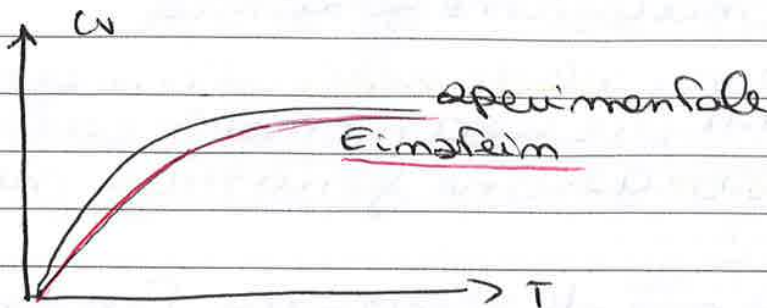 Cv
sperimentale
Einstein
T